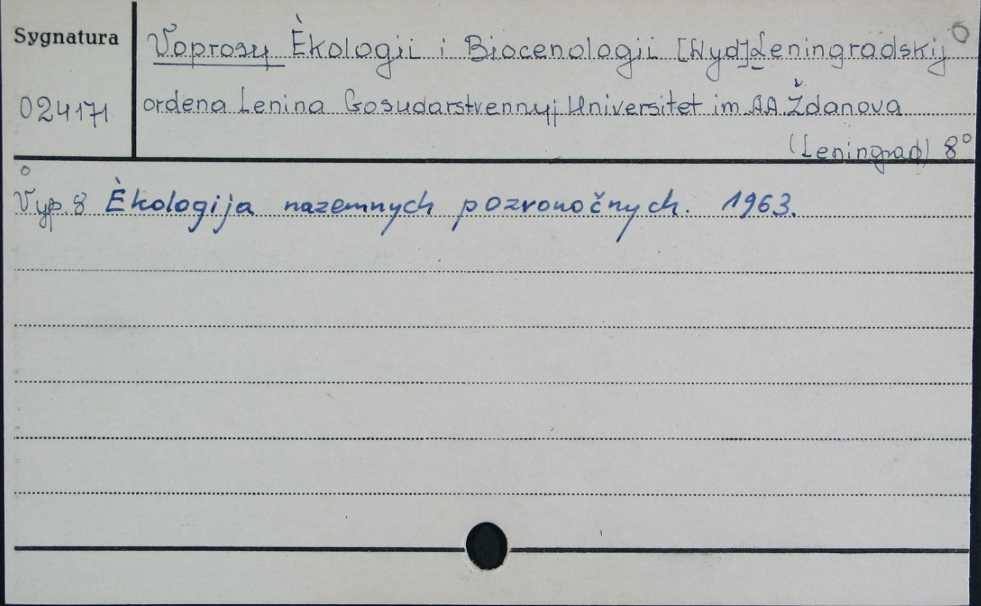 Sygnatura
Voprosy Èkologii i Biocenologii [Wyd] Leningradskij
024171
ordena Lenina Gosudarstvennyj Universitet im. A.A. Ždanova
(Leningrad) 8°
Vyp. 8 Èkologija nazemnych pozvonočnych. 1963.